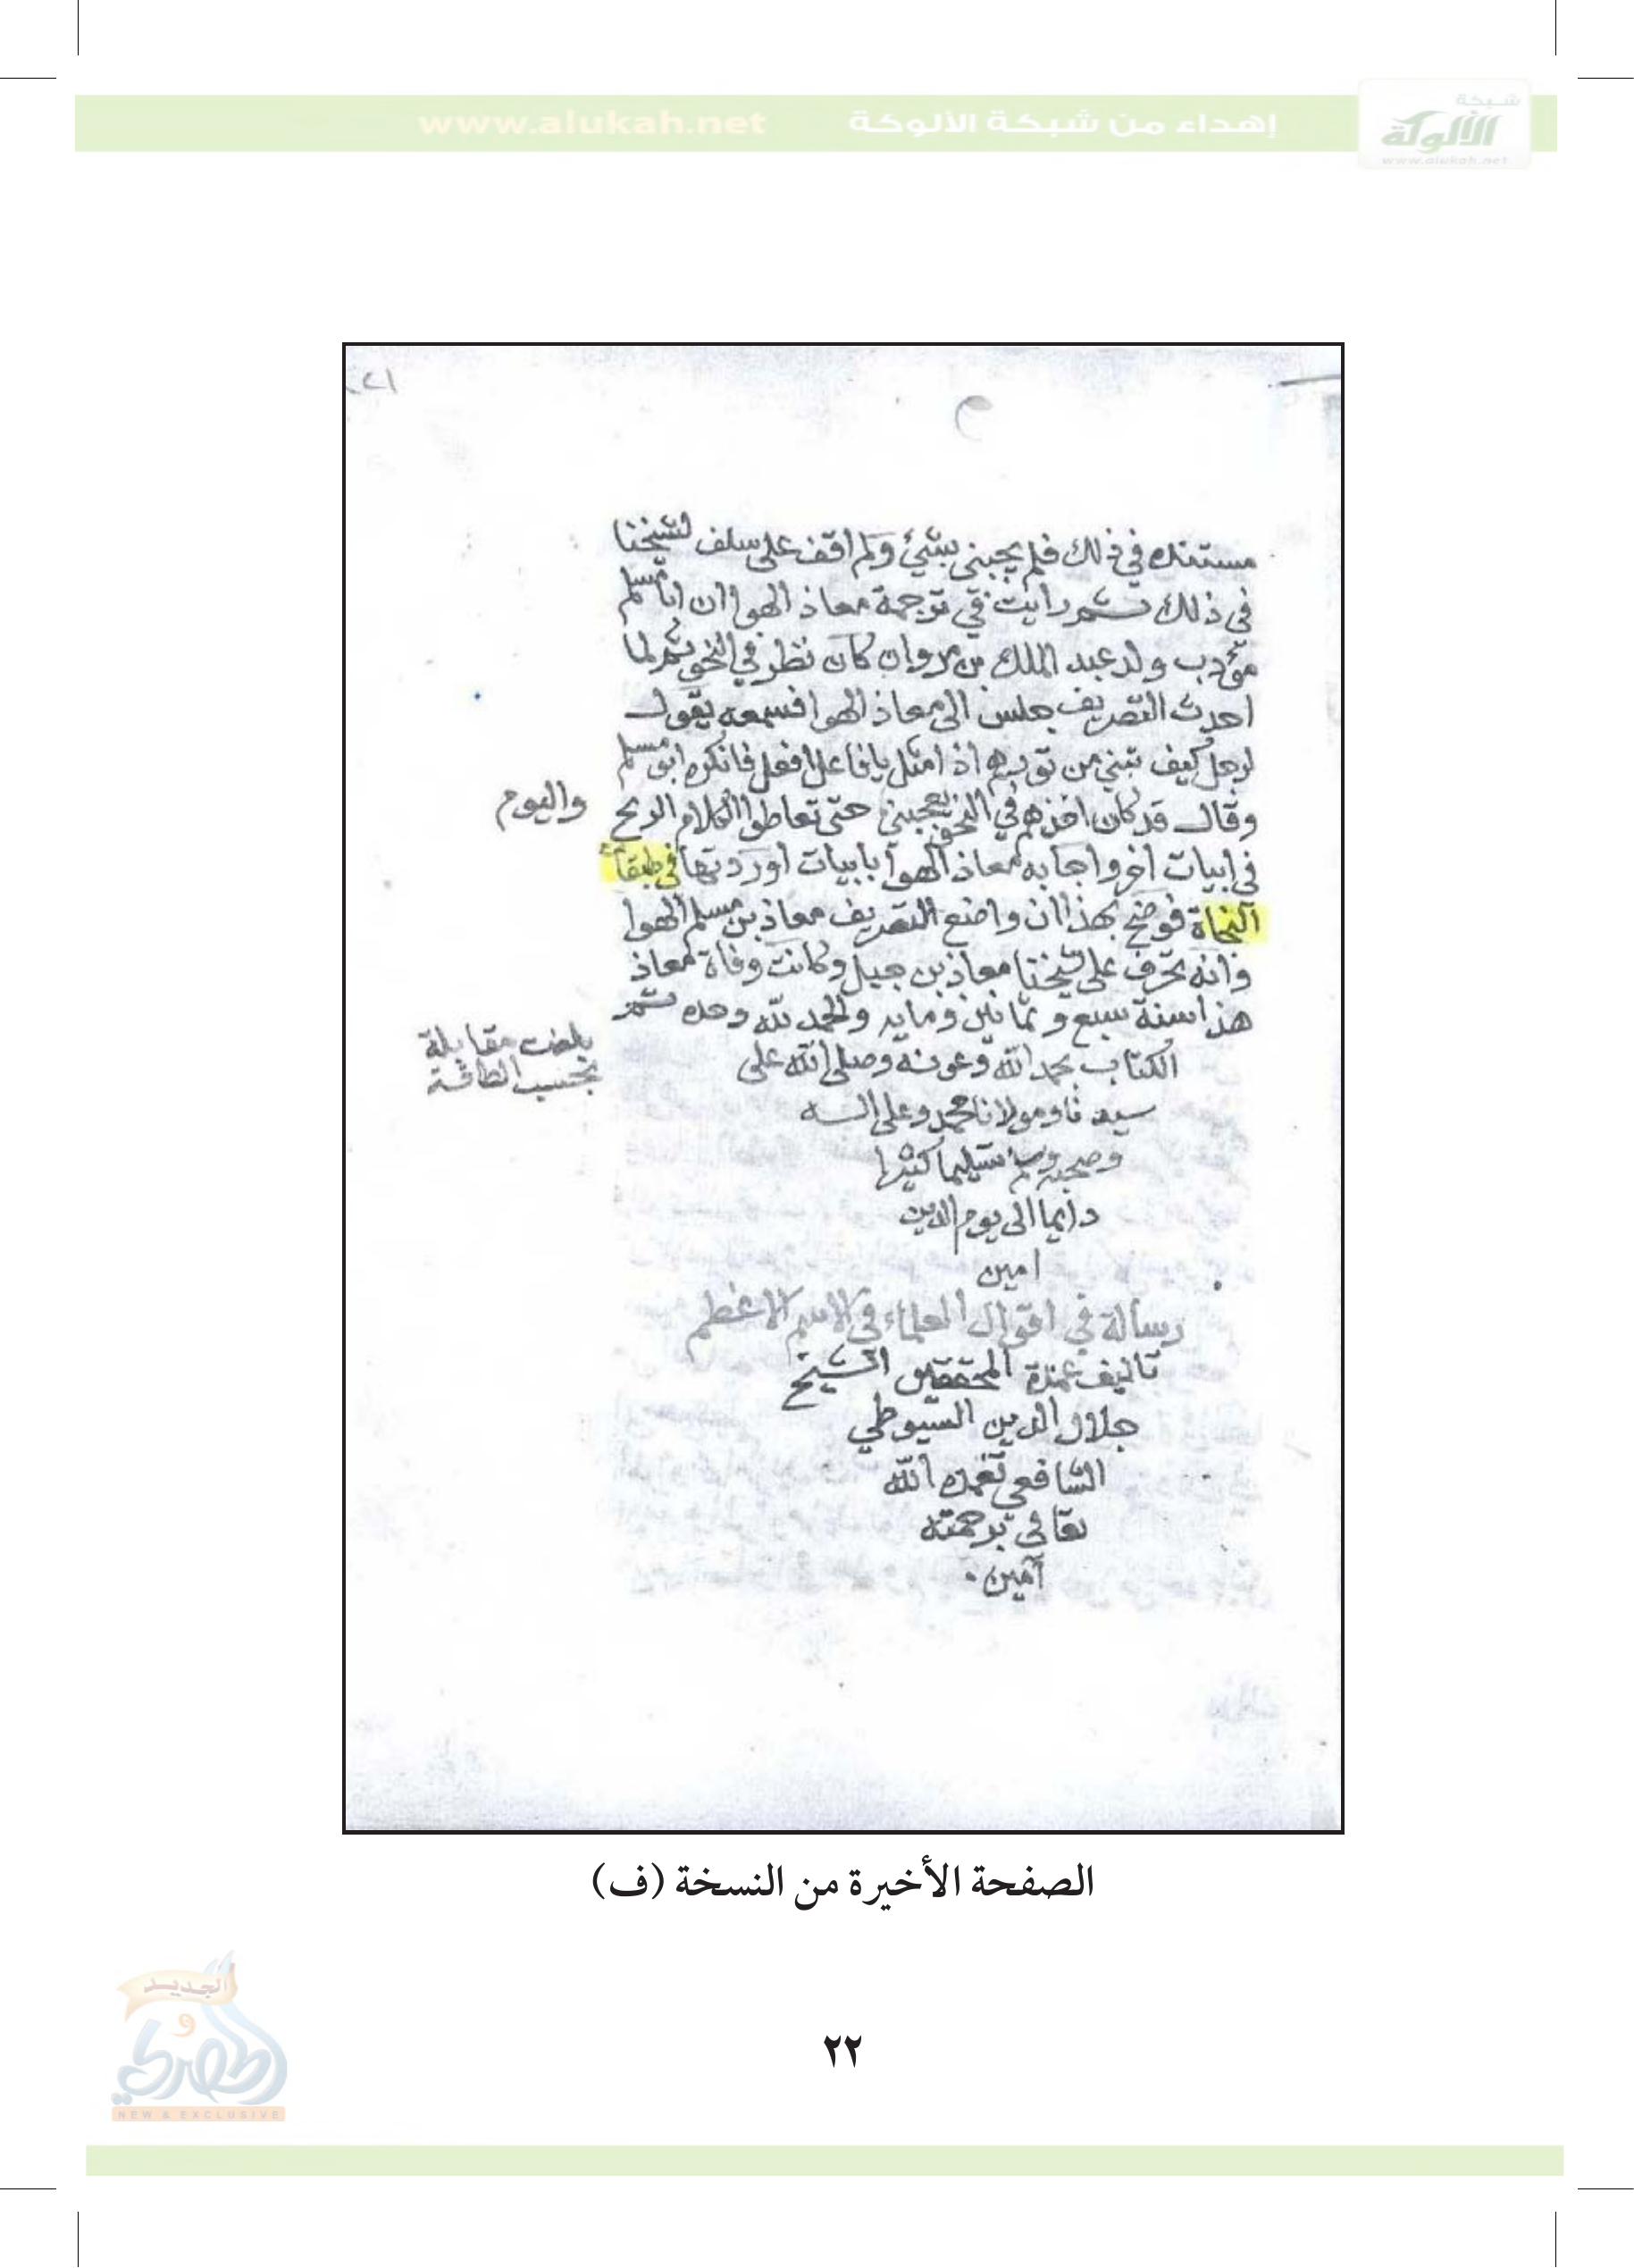 شبكة
الألوكة
www.alukah.net
إهداء من شبكة الألوكة www.alukah.net
مستنده في ذلك فلم يجبني بشيء ولم اقف على سلف لشيخنا
في ذلك ثم رايت في ترجمة معاذ الهوا ان ابا مسلم
مؤدب ولد عبد الملك بن مروان كان نظر في النحو ثم لما
احدث التصريف جلس الى معاذ الهوا فسمعه يقول
لرجل كيف تبني من تؤزهم ازا مثل يا فاعل افعل فانكره ابو مسلم
وقال قد كان اخذهم في النحو يعجبني حتى تعاطوا كلام الزنج
والروم
في ابيات اخر واجابه معاذ الهوا بابيات اوردتها في طبقات
النحاة فوضح بهذا ان واضع التصريف معاذ بن مسلم الهوا
وانه تحرف على شيخنا معاذ بن جبل وكانت وفاة معاذ
هذا سنة سبع وثمانين وماية والحمد لله وحده تم
بلغت مقابلة
بحسب الطاقة
الكتاب بحمد الله وعونه وصلى الله على
سيدنا ومولانا محمد وعلى اله
وصحبه وسلم تسليما كثيرا
دايما الى يوم الدين
امين
رسالة في اقوال العلماء في الاسم الاعظم
تاليف عمدة المحققين الشيخ
جلال الدين السيوطي
الشافعي تغمده الله
تعالى برحمته
آمين .
الصفحة الأخيرة من النسخة (ف)
الجديد
و
المصري
NEW & EXCLUSIVE
٢٢